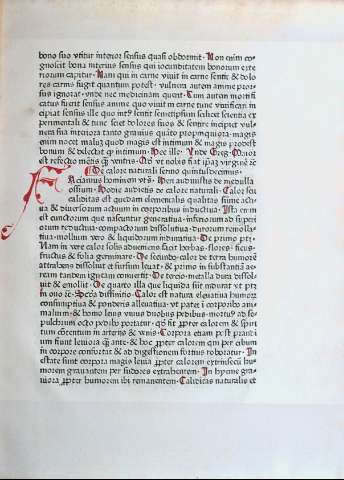 bono suo vtitur interior sensus quasi obdormit · Non enim cognoscit bona interius sensus qui iocunditatem bonorum exteriorum capitur · Nam qui in carne viuit in carne sentit & dolores carnis fugit quantum potest · vulnera autem anime prorsus ignorat · vnde nec medicinam querit · Cum autem mortificatus fuerit sensus anime quo viuit in carne tunc viuificari incipiet sensus ille quo
sentit semetipsum scilicet
& tunc sciet dolores suos & sentire incipiet vulnera sua interiora tanto grauius quito propinquiora · magis enim nocet malum quod magis est intimum & magis prodest bonum & delectat qd intimum · Hec ille · Unde Greg · Maior est refectio mētis qȝ ventris ·
De calore naturali sermo quintusdecimus ·
Facianius hominem &c · Heri audiuistis de medulla ossium · Hodie audietis de calore naturali · Calor seu caliditas est quedam elementalis qualitas
actiua & diuersorum actuum in corporibus inductiua · Ista enim est cunctorum que nascuntur generatiua · inferiorum ad superiora reductiua · compactorum dissolutiua · durorum remollatiua · mollium vero & liquidorum induratiua · De primo ptȝ · Nam in vere calor solis adueniens facit herbas · flores · fructus & folia germinare · De secundo · calor de terra humorē attrahens dissoluit et sursum leuat · & primo in substantiā aeream tandem igneam conuertit · De tercio · metalla dura dissoluit & emollit · De quarto illa que liquida sūt indurat vt ptȝ in ouo &c · Secūda diffinitio · Calor est natura eleuatiua humorum consumptiua & ponderis alleuiatiua · vt patet ī corporibȝ animalium · & homo leuis viuus duobus pedibus · mortuus ad sepulchrum octo pedibȝ portatur · qd fit ꝓpter calorem & spiritum
in arteriis & venis · Corpora etiam post prandium fiunt leuiora qȝ ante · & hoc ꝓpter calorem qui per cibum in corpore confortat̄ & ad digestionem fortius roborat̄ · In estate sunt corpora magis leuia ꝓpter calorem extrinsecū humorem grauantem per sudores extrahentem · In hyeme grauiora ꝓpter humorem ibi remanentem · Caliditas naturalis et